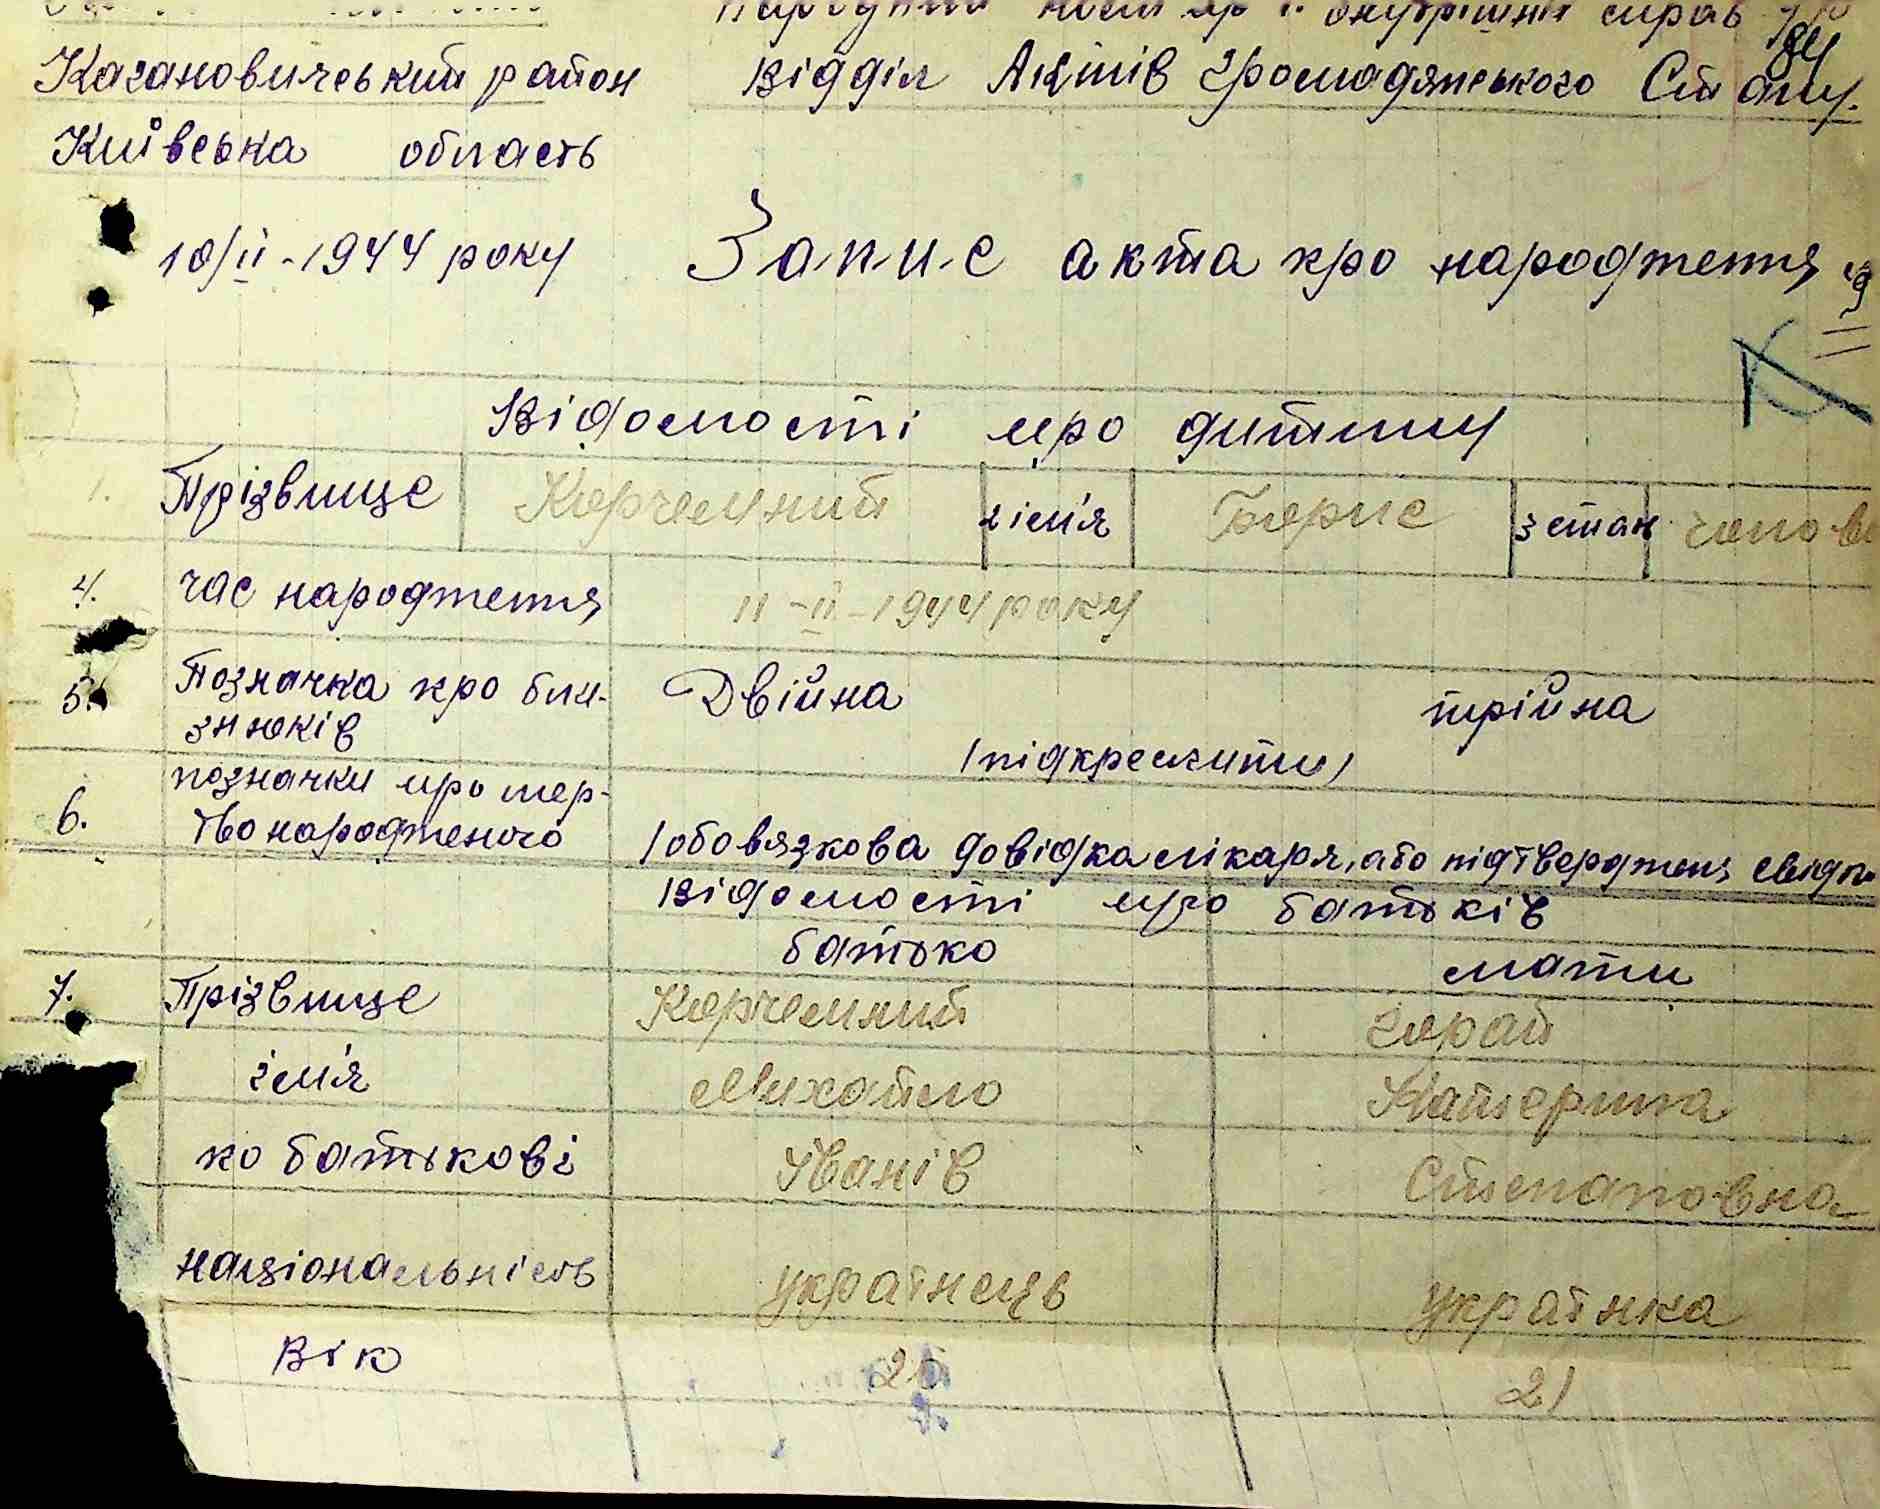 внутрішніх справ
Кагановичський район Відділ Актів Громадянського Стану.
84
Київська область
10/II-1944 року Запис акта про народження
Відомості про дитину
1. Прізвище Корчемний 2 ім'я Борис 3 стан
4. час народження 11-II-1944 року
5. Позначка про бли- Двійна трійна
знюків /підкреслити/
6. позначки про мер-
твонародженого /обовязкова довідка лікаря, або підтвердженя
Відомості про батьків
батько мати
7. Прізвище Корчемний Горай
ім'я Михайло Катерина
по батькові Іванів Степановна
національність українець українка
Вік 26 21